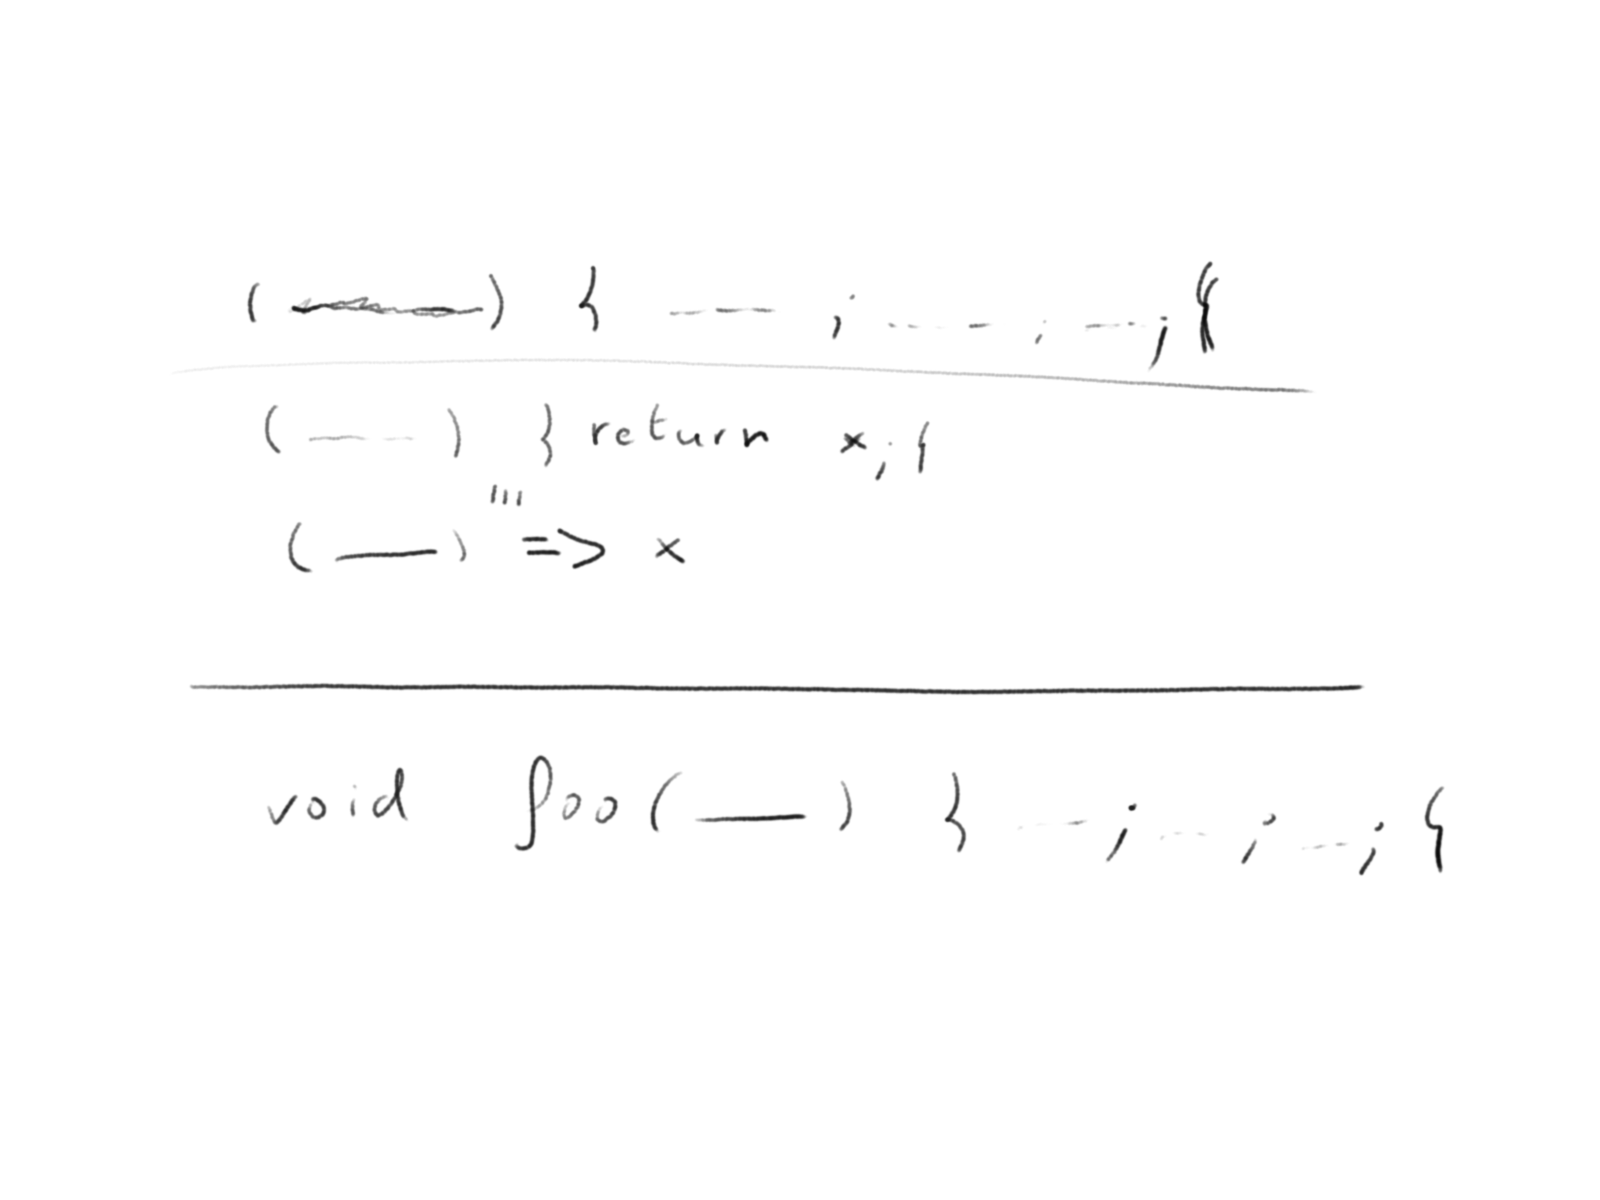 ( — ) { — — ; — — ; — — ; }
( — — ) { return x; }
'''
( — ) => x
void foo( — ) { — — ; — — ; — — ; }